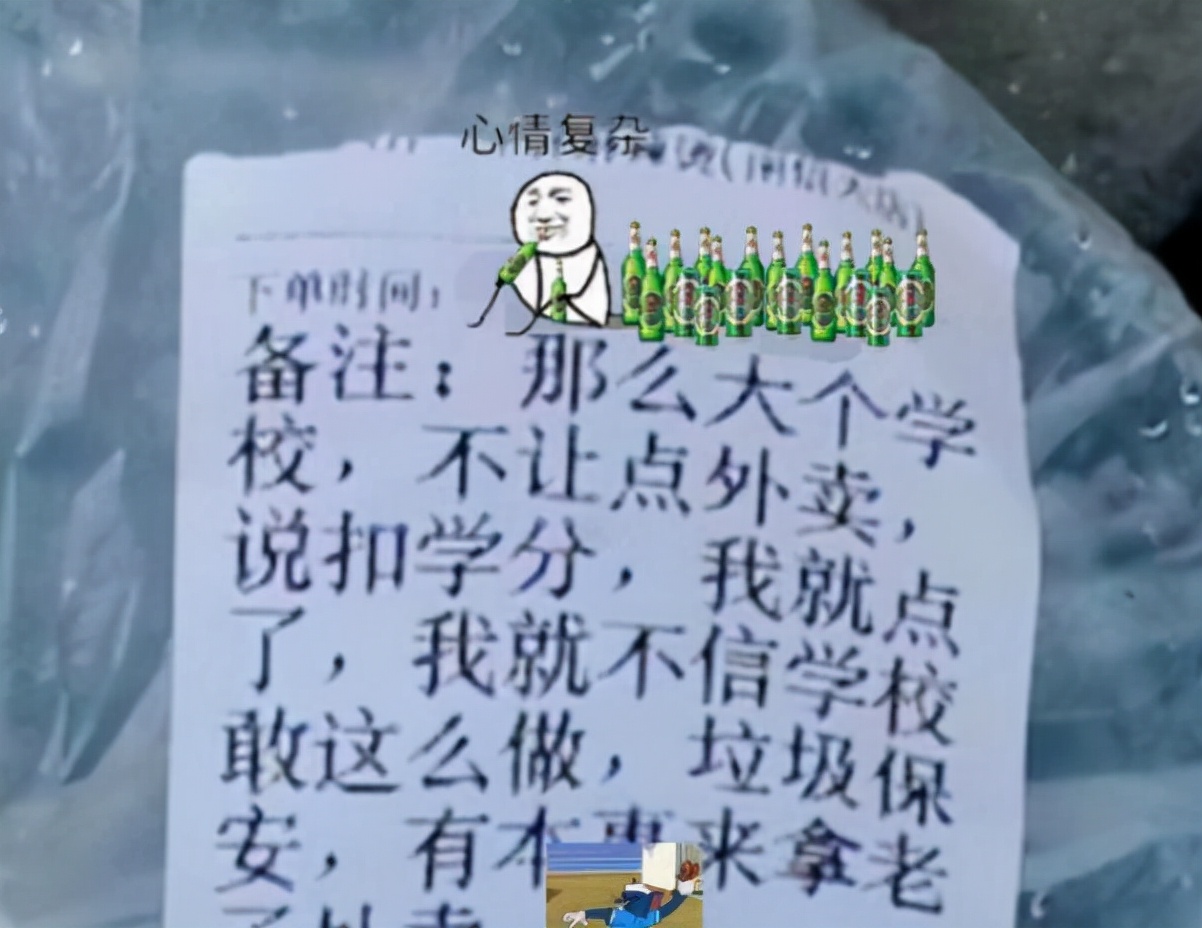 心情复杂
下单时间：
备注：那么大个学
校，不让点外卖，
说扣学分，我就点
了，我就不信学校
敢这么做，垃圾保
安，有本事来拿老